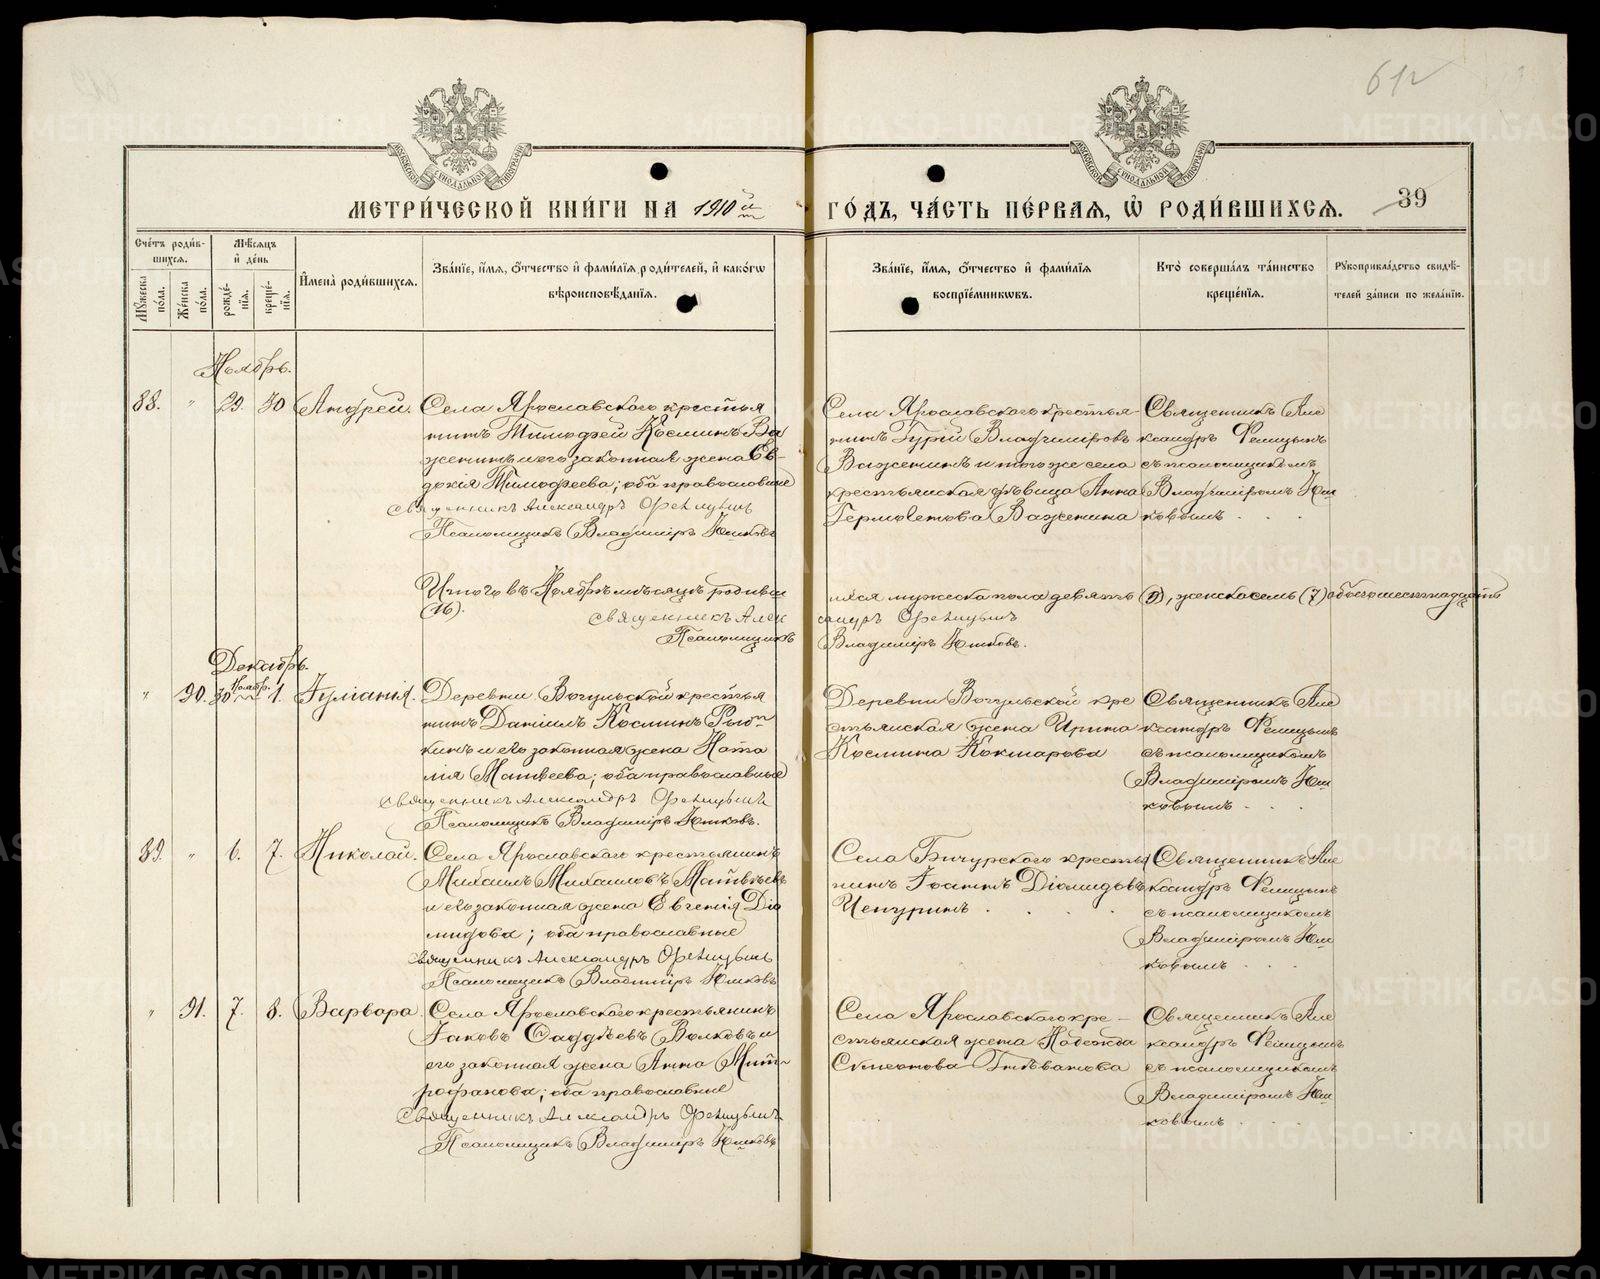 612
МОСКОВСКОЙ СѴНОДАЛЬНОЙ ТИПОГРАФІИ
МОСКОВСКОЙ СѴНОДАЛЬНОЙ ТИПОГРАФІИ
МЕТРИ́ЧЕСКОЙ КНИ́ГИ НА 1910й
ГО́ДЪ, ЧА́СТЬ ПЕ́РВАЯ, Ѡ҆ РОДИ́ВШИХСЯ.
39
Сче́тъ роди́в-
шихся.
Мꙋ́жеска по́ла.
Же́нска по́ла.
Мѣ́сяцъ
и҆ де́нь
рожде́-
нїя.
креще́-
нїя.
И҆мена̀ роди́вшихся.
Зва́нїе, и҆́мя, ѻ҆́тчество и҆ фами́лїя роди́телей, и҆ како́гѡ
вѣроисповѣ́данїя.
Зва́нїе, и҆́мя, ѻ҆́тчество и҆ фами́лїя
воспрїе́мникѡвъ.
Кто̀ соверша́лъ та́инство
креще́нїя.
Рꙋкоприкла́дство свидѣ́-
телей за́писи по жела́нїю.
Ноябрь.
88. " 29. 30 Андрей.
Села Ярославскаго крестья
нинъ Тимофей Космин Ва
женинъ и его законная жена Ев-
докія Тимофеева; оба православные
Священникъ Александръ Фелицынъ
Псаломщикъ Владиміръ Юшковъ
Села Ярославскаго крестья-
нинъ Гурій Владиміровъ
Важенинъ и того же села
крестьянская дѣвица Анна
Важенина
Священникъ Але
ксандръ Фелицынъ
съ псаломщикомъ
Владиміромъ Юш
ковымъ . . .
Итого въ Ноябрѣ мѣсяцѣ родивши
хся мужеска пола девять (9), женска семь (7) обоего шестнадцать
(16).
Священникъ Алек
сандръ Фелицынъ
Псаломщикъ
Владиміръ Юшковъ.
Декабрь.
" 90. 30 Ноябр. 1. Іуліанія.
Деревни Вогульской крестья
нинъ Даніилъ Космин
кинъ и его законная жена Ната
лія Матвеева; оба православные
Священникъ Александръ Фелицынъ
Псаломщикъ Владиміръ Юшковъ.
Деревни Вогульской кре
стьянская жена Ирина
Космина Кокшарова
Священникъ Але
ксандръ Фелицынъ
съ псаломщикомъ
Владиміромъ Юш
ковымъ . . .
89. " 6. 7. Николай.
Села Ярославскаго крестьянинъ
Михаилъ Михаиловъ Матвѣевъ
и его законная жена Евгенія Діо
мидова; оба православные
Священникъ Александръ Фелицынъ
Псаломщикъ Владиміръ Юшковъ
Села Бичурскаго крестья
нинъ Іоаннъ Діомидовъ
Чепуринъ . . . .
Священникъ Але
ксандръ Фелицынъ
съ псаломщикомъ
Владиміромъ Юш
ковымъ . .
" 91. 7. 8. Варвара.
Села Ярославскаго крестьянинъ
Іаковъ Фаддѣевъ Волковъ и
его законная жена Анна Мит-
рофанова; оба православные
Священникъ Александръ Фелицынъ
Псаломщикъ Владиміръ Юшковъ
Села Ярославскаго кре-
стьянская жена Надежда
Симеонова
Священникъ Але
ксандръ Фелицынъ
съ псаломщикомъ
Владиміромъ Юш
ковымъ . . .
METRIKI.GASO-URAL.RU